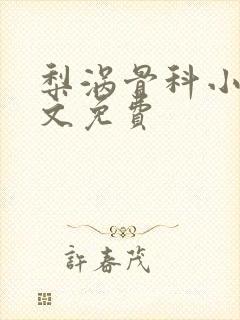 梨涡骨科小
文免費
許春茂